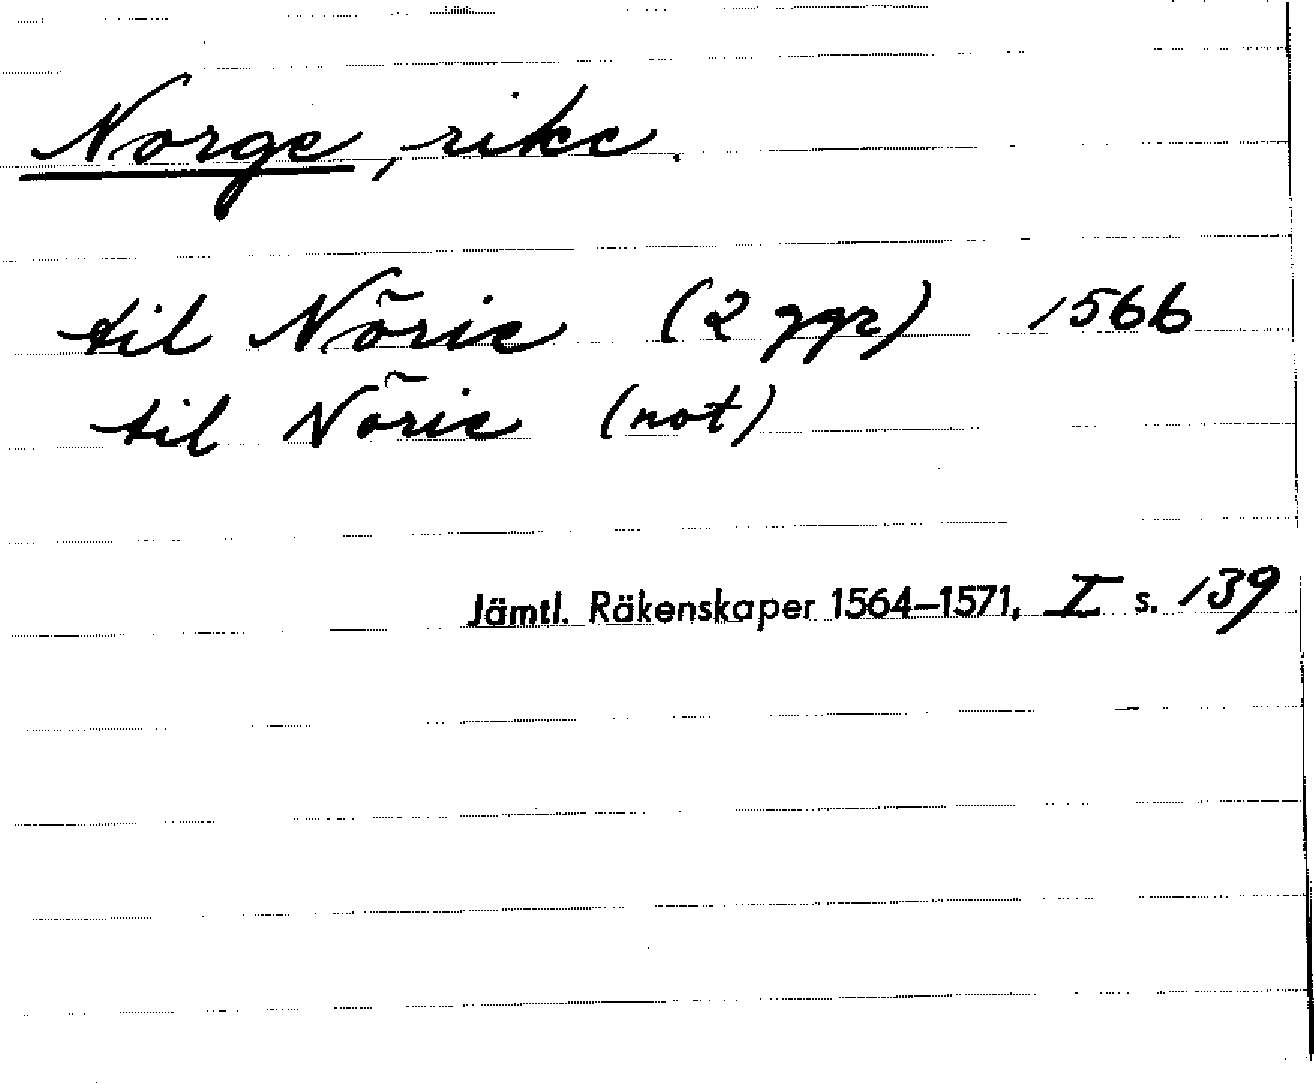 Norge, rike.
til Nõrie (2 ggr) 1566
til Nõrie (not)
Jämtl. Räkenskaper 1564–1571, I s. 139